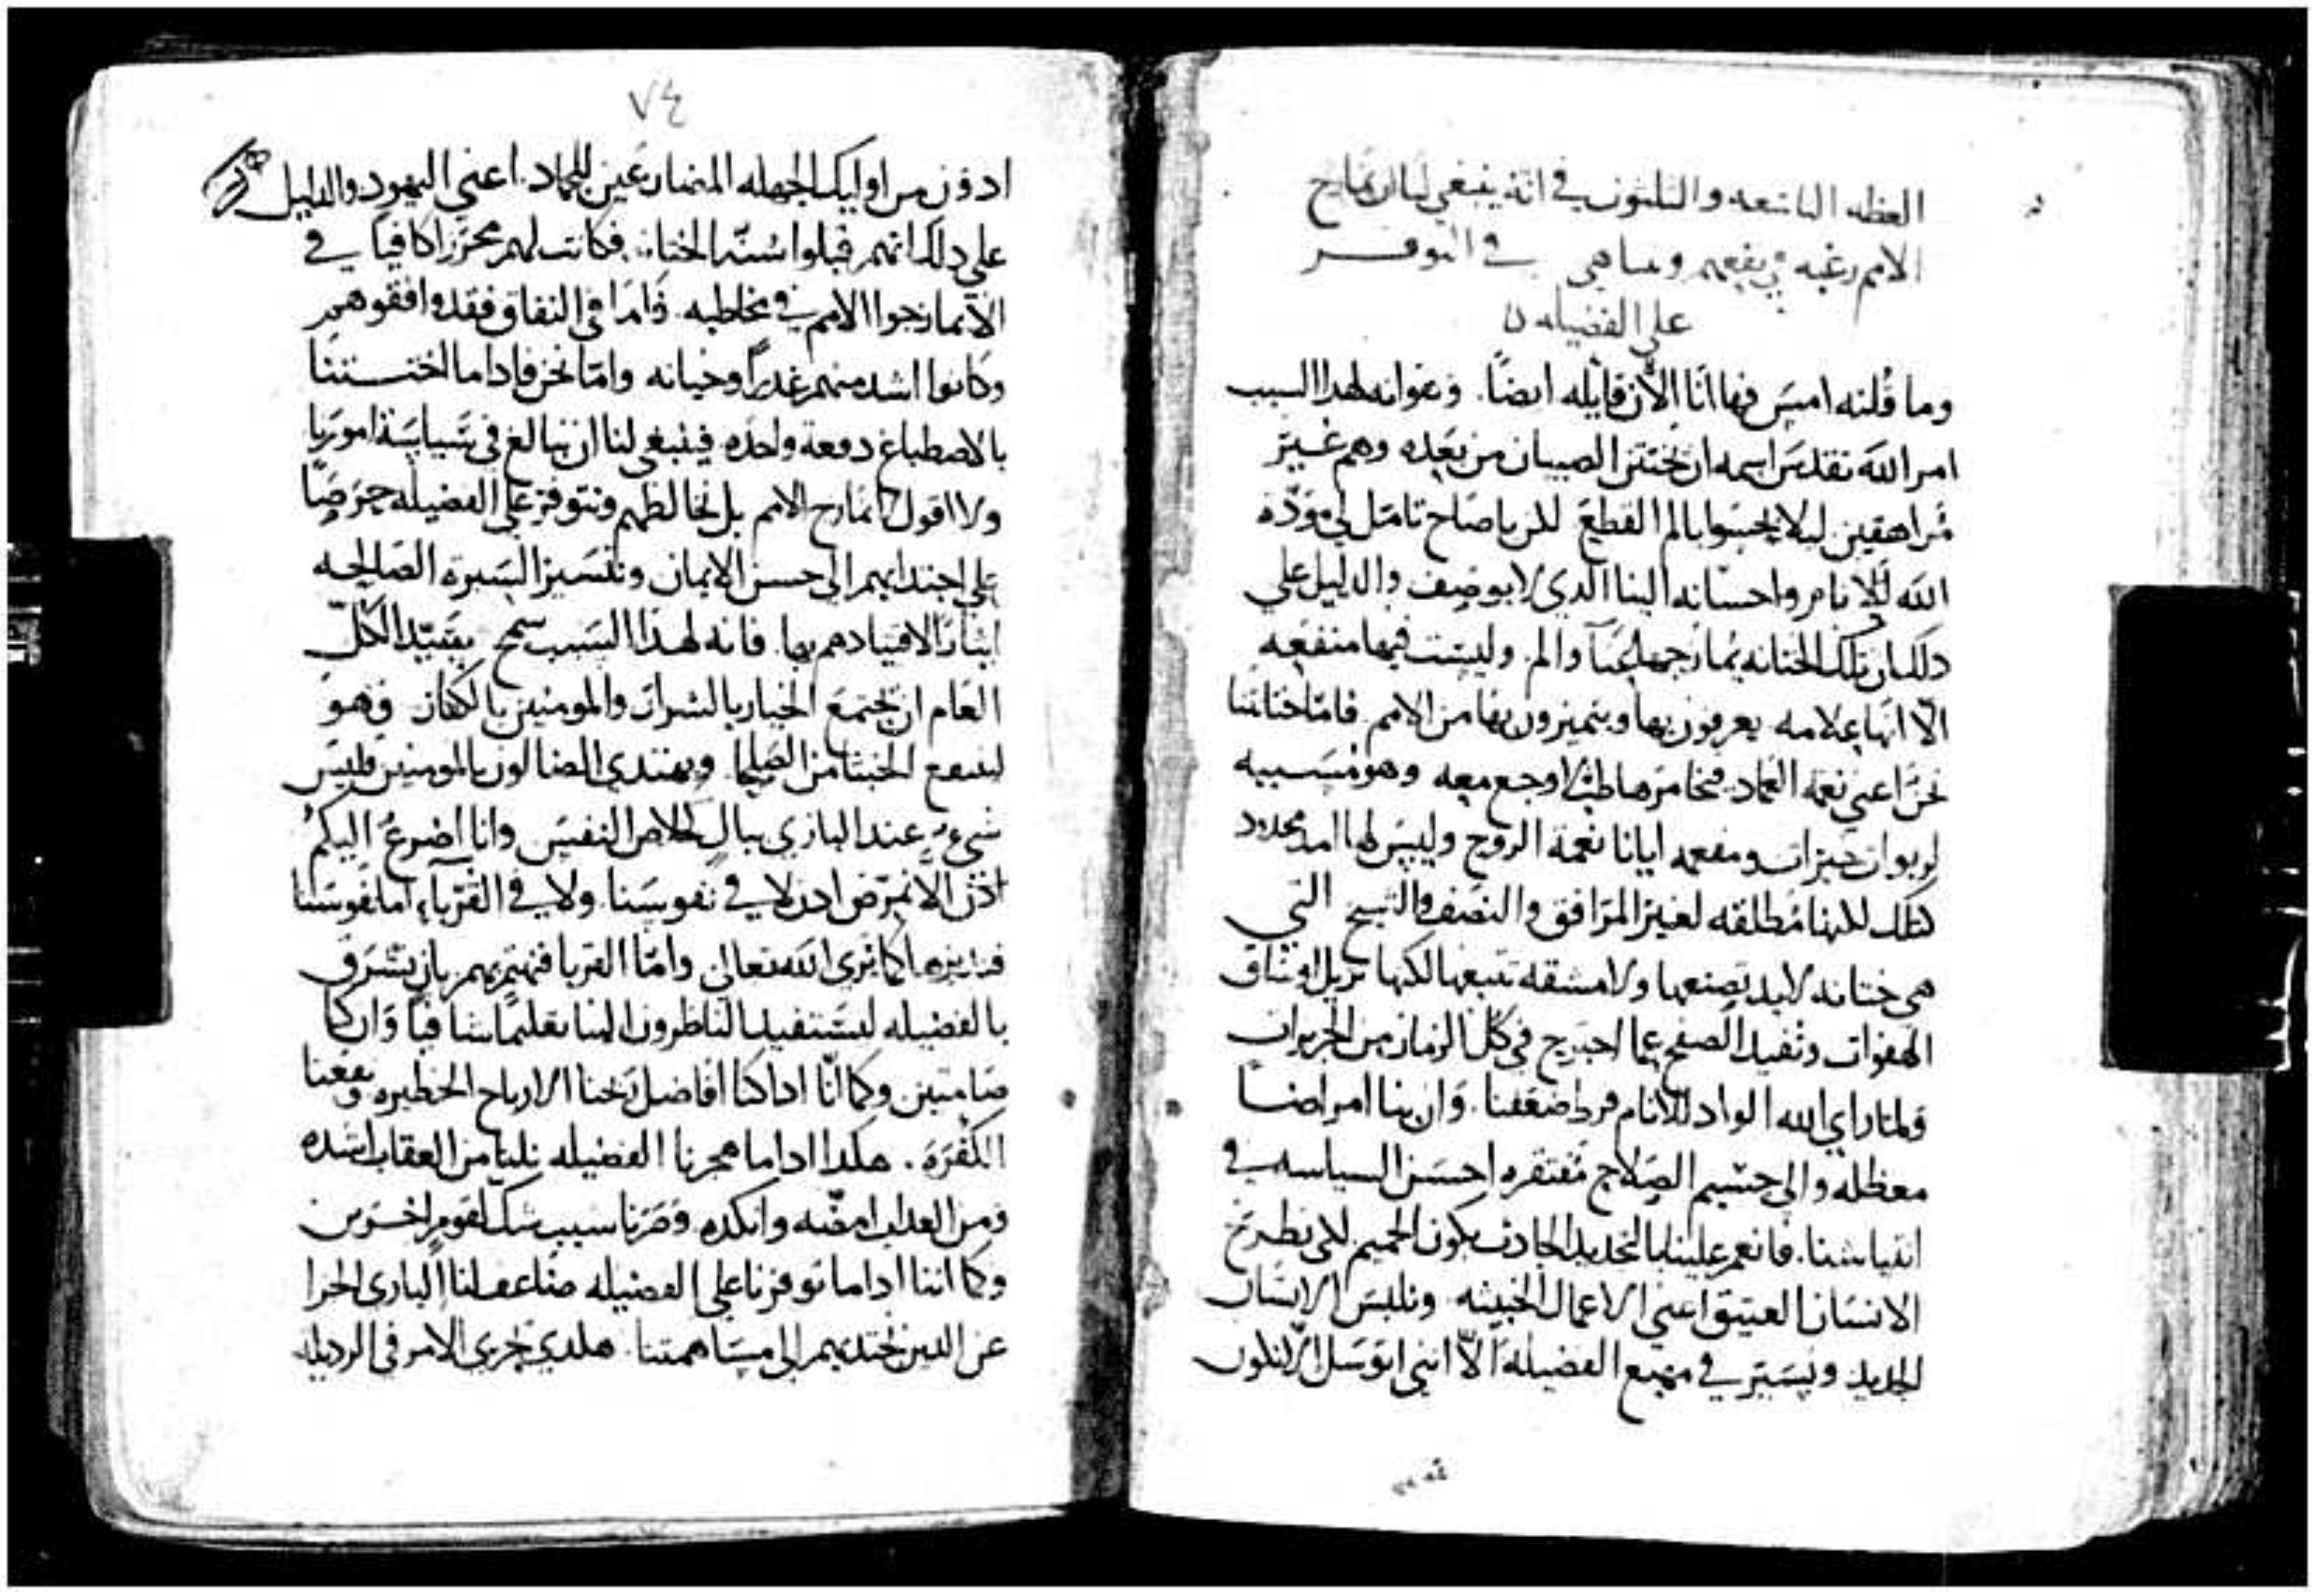 العظه التاسعه والثلثون في انه ينبغي لنا ان نمازح
الامم رغبه في نفعهم وساهي في التوفر
على الفضيله
وما قُلته امس فها انا الآن قايله ايضاً. وعوانه لهذا السبب
امر الله تقدس اسمه ان تختتن الصبيان من بعده وهم غير
مُراهقين ليلا يحسوا بالم القطع لكن يا صاح تامل لي مودّة
الله للانام واحسانه الينا الدي لا يوصف والدليل على
دلك ان تلك الختانه يمازجها عناً والم. وليست فيها منفعه
الّا انها علامه يعرفون بها ويتميزون بها من الامم. فامّا ختانتنا
نحن اعني نعمة العماد. فخامرها طبّ لا وجع معه وهو مُسببه
لربوات خيرات ومفعمه ايانا نعمة الروح وليس لها امد محدود
كتلك لكنها مُطلقه لغير المرافق والنصف والنسخ التي
هي ختانه لا بيد تصنعها ولا مشقه تتبعها لكنها تزيل اوساق
الهفوات وتفيد الصفح عما اجترح في كل الزمان من الجريرات
ولمّا راي الله الواد للانام فرط ضعفنا. وان بنا امراضاً
معظله والى جسيم الصلاح مُفتقره احسن السياسه في
انتياشنا. فانعم علينا بالتجديد الحادث بكون الحميم لكي نطرح
الانسان العتيق اعني الاعمال الخبيثه ونلبس الانسان
الجديد ونسير في مهيع الفضيله الّا انني اتوسل الّا نكون
٧٤
ادون من اوليك الجهله المضارعين للجماد. اعني اليهود والدليل
على دلك انهم قبلوا سُنّه الختان. فكانت لهم محرزاً كافياً في
الّا يمازجوا الامم في مخاطبه. فامّا في النفاق فقد وافقوهم
وكانوا اشد منهم غدراً وخيانه وامّا نحن فادا ما اختتنّا
بالاصطباغ دفعة واحده فينبغي لنا ان نبالغ في سياسة امورنا
ولا اقول الّا نمازح الامم بل نخالطهم ونتوفر على الفضيله حرصاً
على اجتدابهم الى حسن الايمان ونسير السيره الصالحه
ايثاراً لاقتيادهم بها. فانه لهذا السبب سمح سيد الكلّ
العام ان يجتمع الخيار بالشرار والمومنين بالكفار. وهو
لينتفع الخبثا من الصلحا. ويهتدي الضالون بالمومنين فليس
شيء عند الباري ببال كخلاص النفس وانا اضرع اليكم
اذن الّا نمرّض ادن لا في نفوسنا. ولا في القربآء. اما نفوسنا
فندبرها كما يُرى الله تعالى وامّا القربا فنهتم بهم بان نشرق
بالفضيله ليستفيد الناظرون الينا تعليماً شافياً وان كنا
صامتين وكما انّا ادا كنا افاضل ربحنا الارباح الخطيره ونفعنا
الكفرة. هكدا ادا ما هجرنا الفضيله نلنا من العقاب اشده
ومن العداب امضّه وانكده وصرنا سبب شك لقوم اخرين
وكما اننا ادا ما توفرنا على الفضيله ضاعف لنا الباري الجزا
عن الدين نجتدبهم الى مساهمتنا. هكدي يجري الامر في الرديله